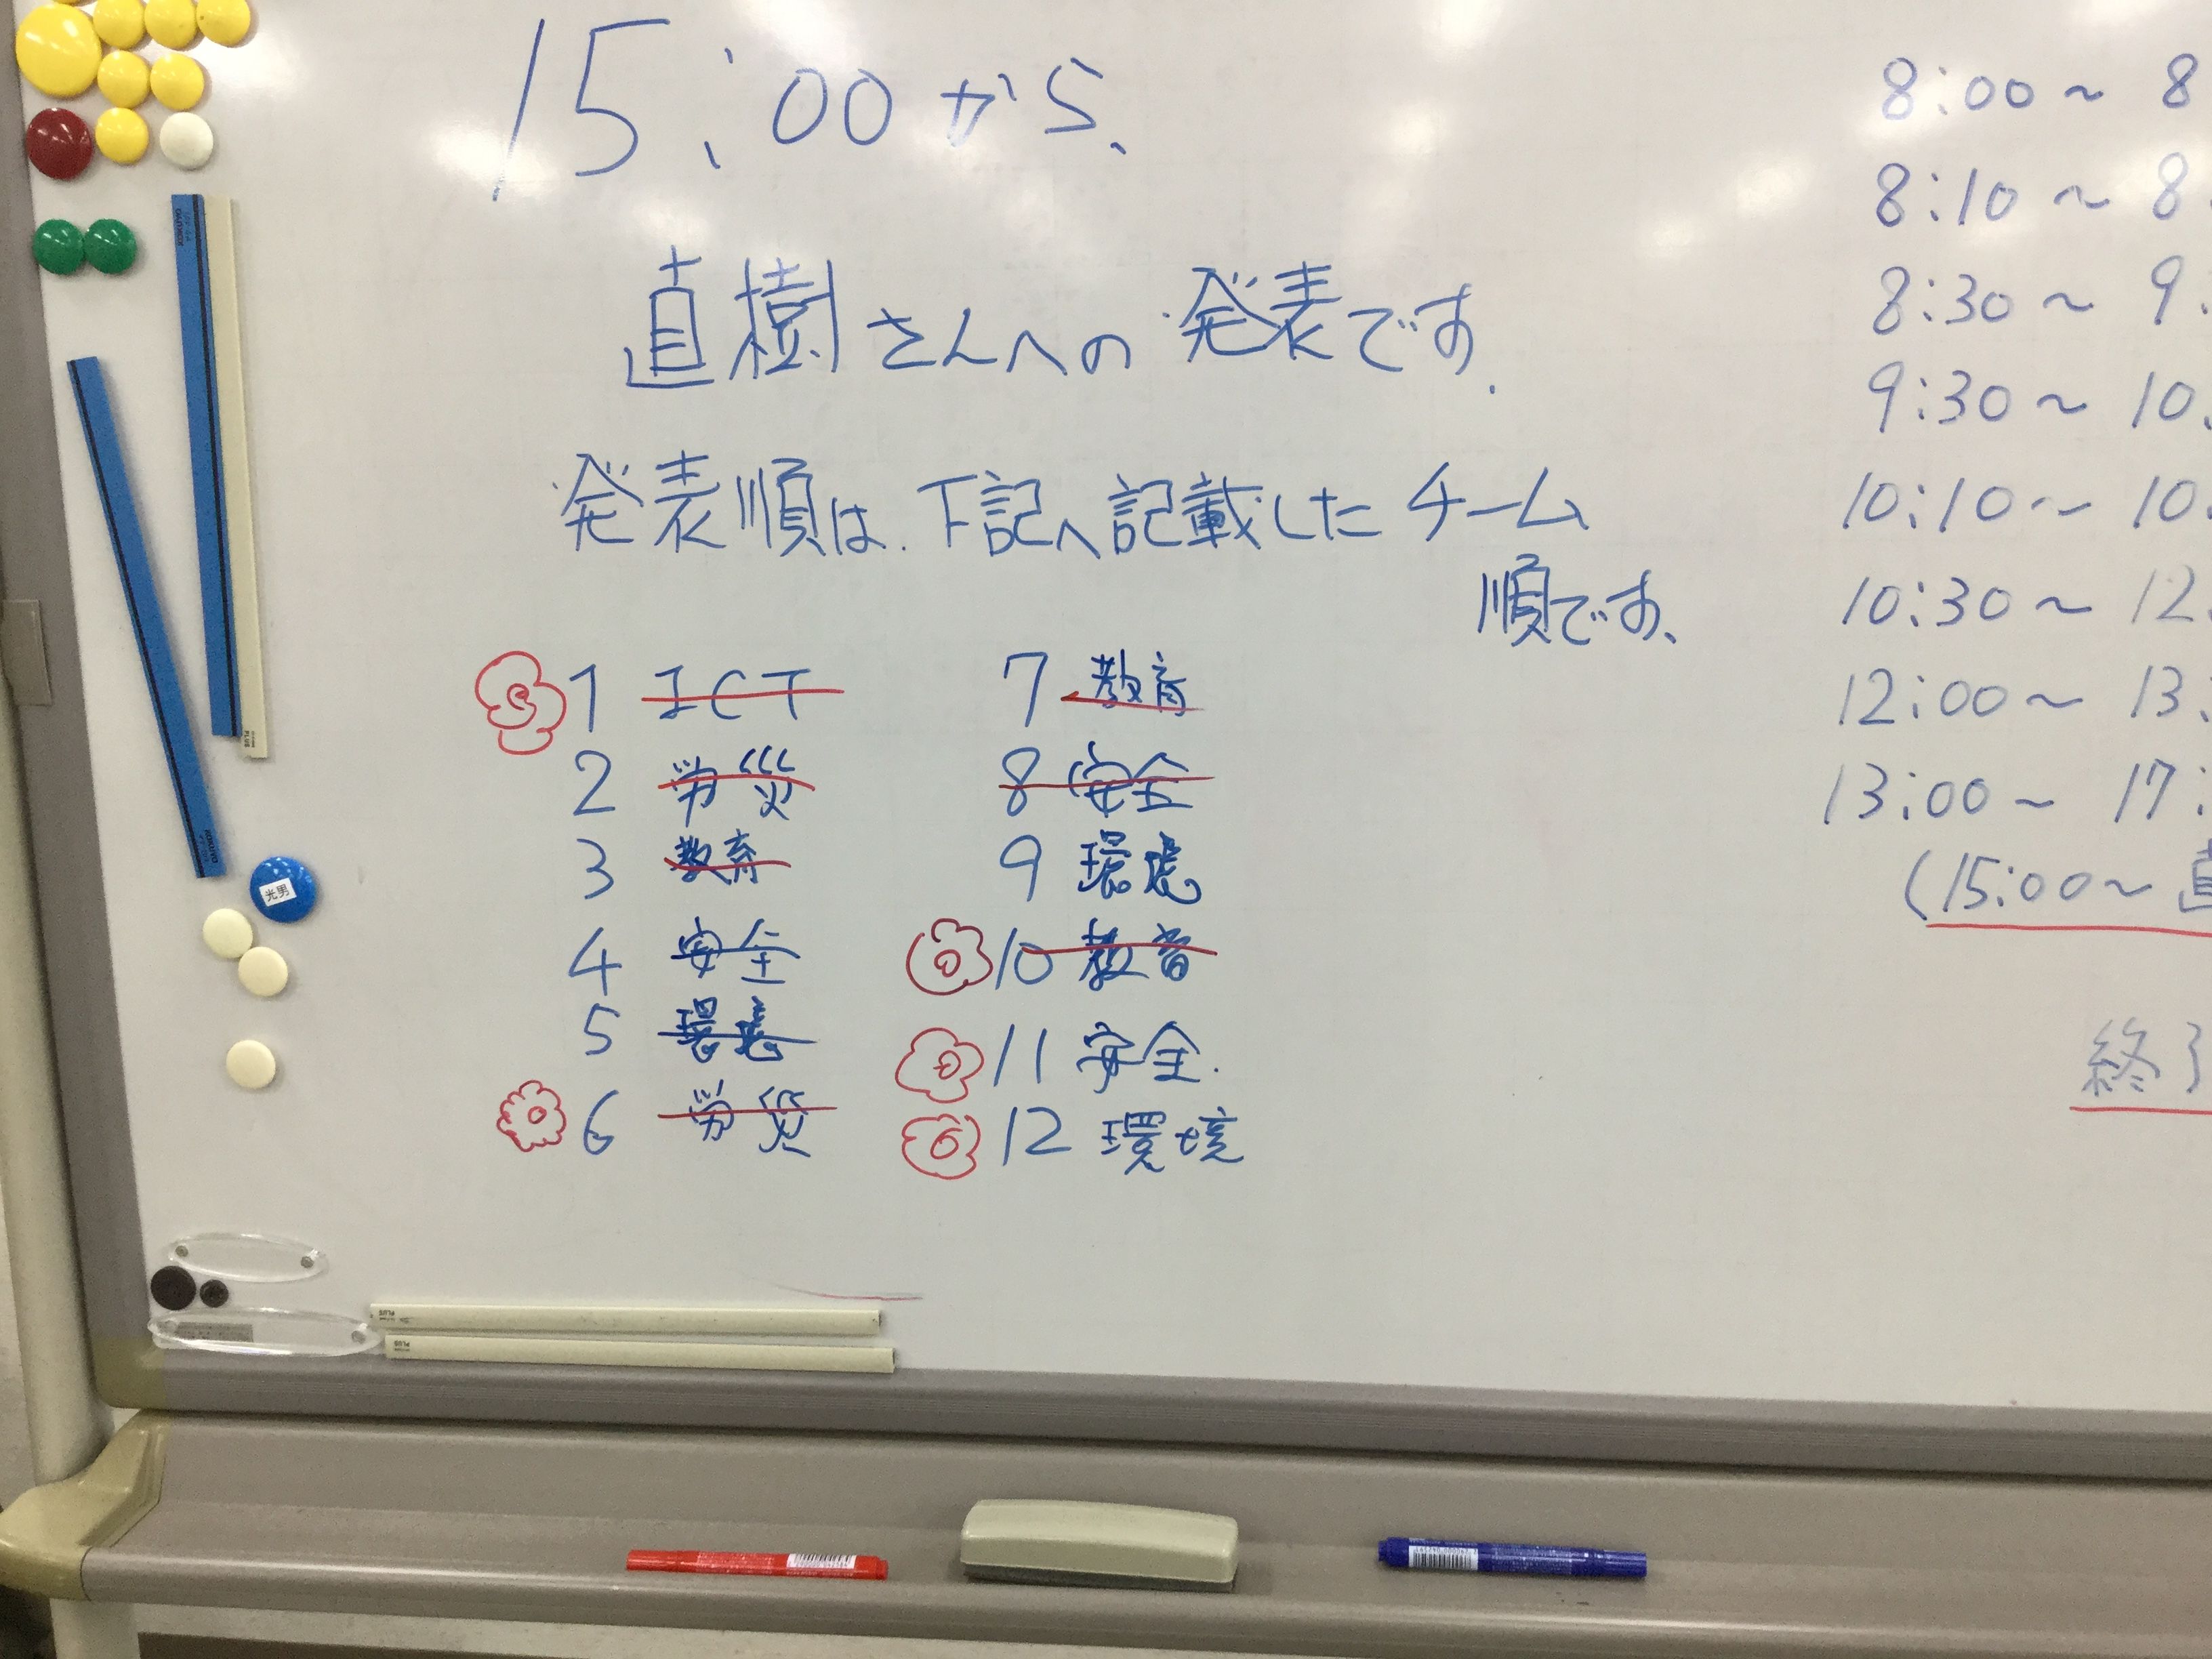 15:00から、
直樹さんへの発表です.
発表順は.下記へ記載したチーム
順です、
1 ICT
2 労災
3 教育
4 安全
5 環境
6 労災
7 教育
8 安全
9 環境
10 教育
11 安全.
12 環境
8:00～8
8:10～8
8:30～9
9:30～10
10:10～10
10:30～12
12:00～13
13:00～17:
(15:00～直
終了
光男
PLUS
PLUS
PLUS
KOKUYO